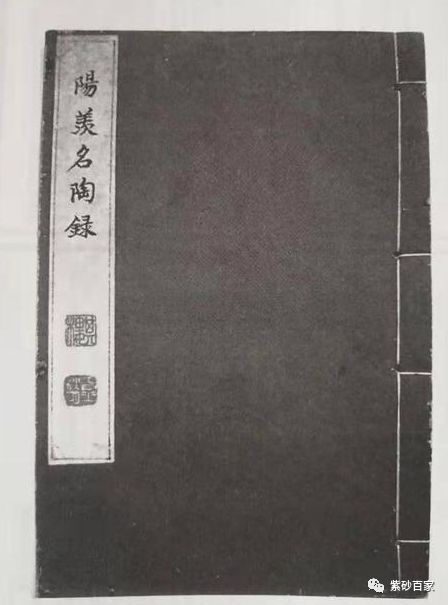 陽羨名陶録
紫砂百家